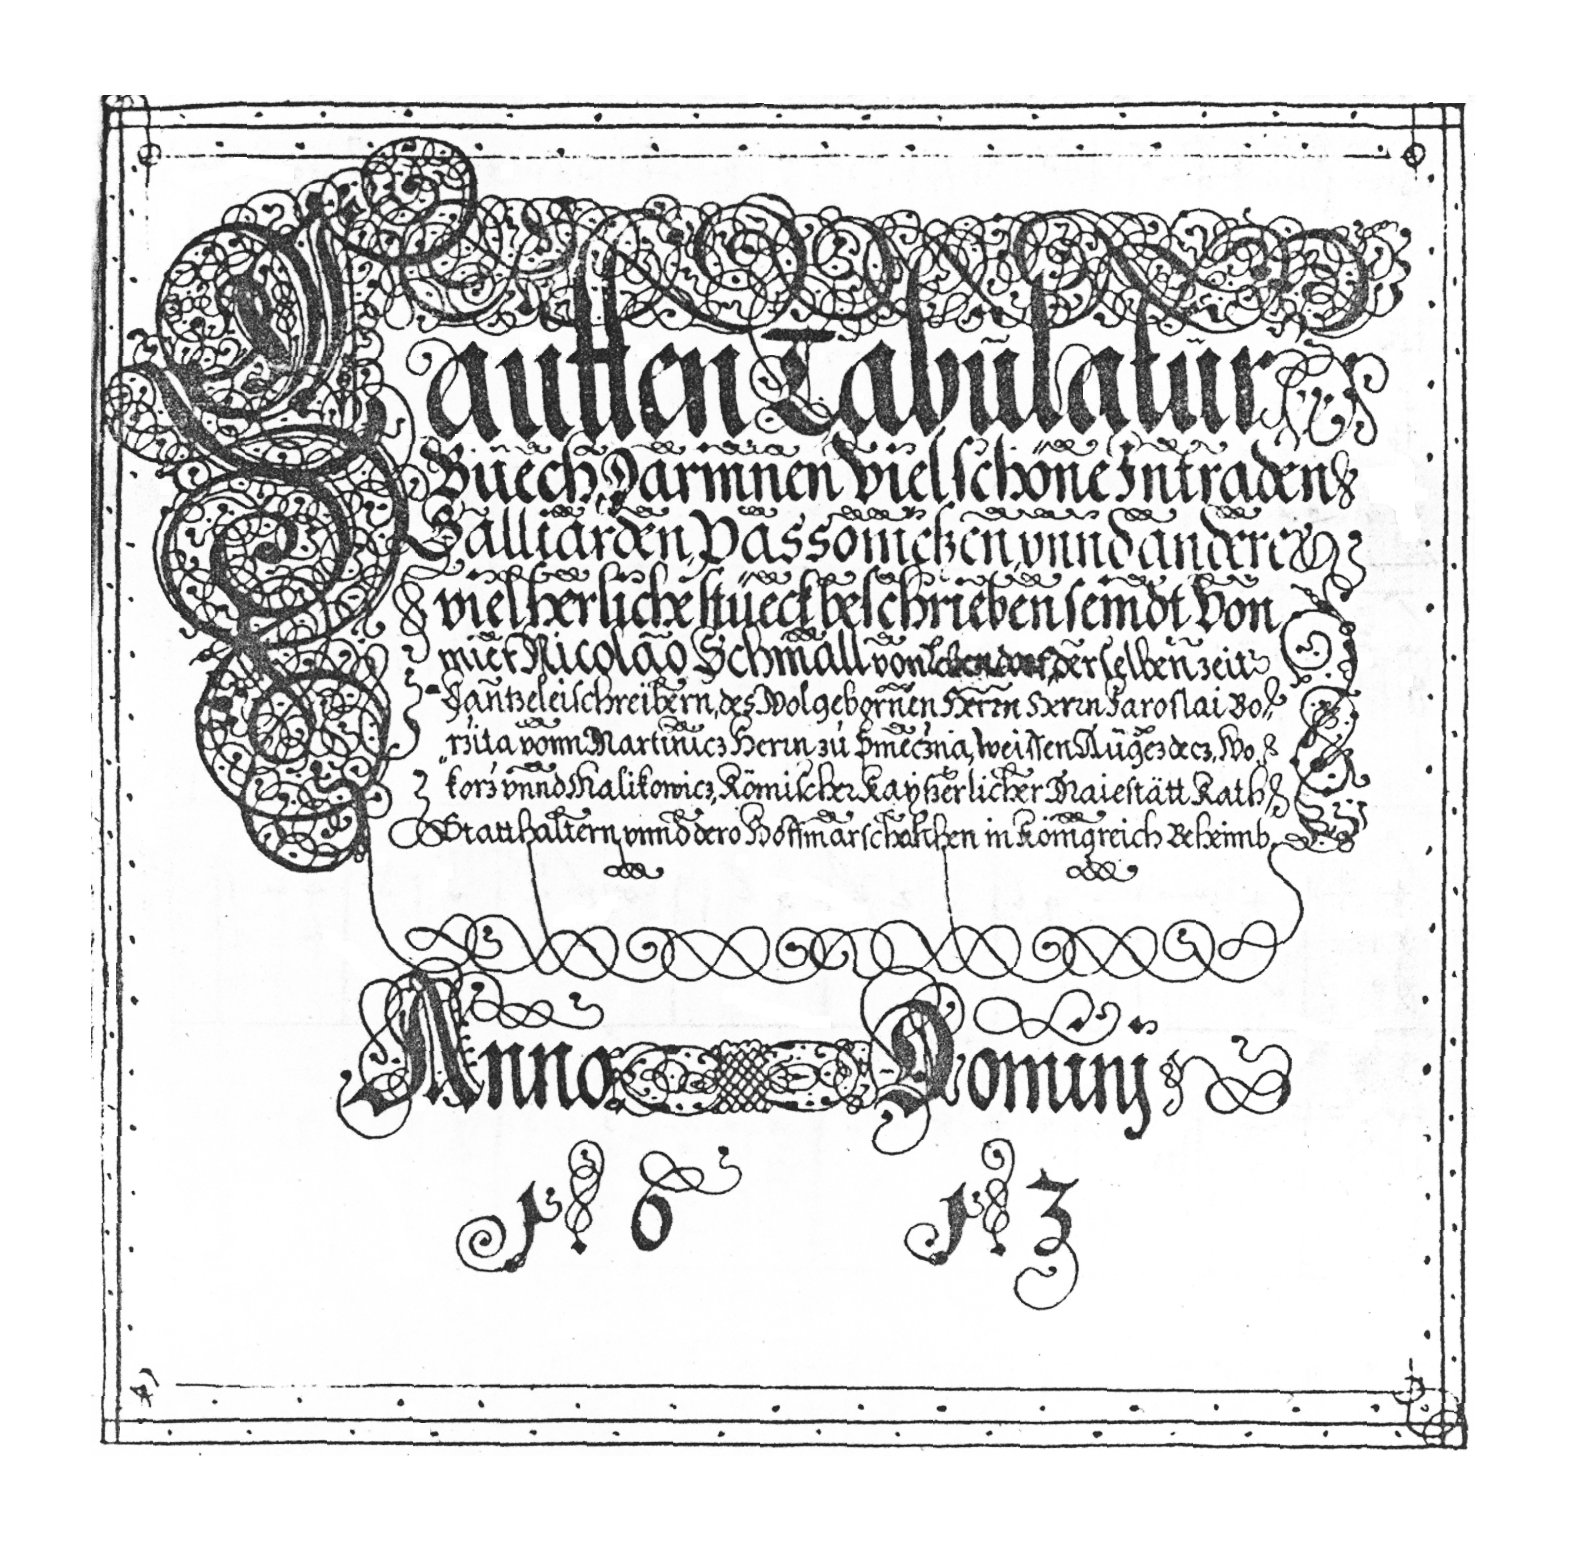 Lautten Tabulatur
Buech Darinnen viel schöne Intraden
Galliarden, Passomeczen, vnnd andere
viel herliche stüeck beschrieben seindt Von
mier Nicolao Schmall von Lebendorf, der selben zeit
Cantzeleischreibern, des Wolgebornnen Herrn Herrn Jaroslai Bo„
„rzita vonn Martinicz Herrn zu Smeczna, Weissen Augezdecz, Wo„
korz vnnd Malikowicz, Römischer Kayserlicher Maiestätt Rath
Statthaltern vnnd dero Hoffmarschalkhen in Königreich Beheimb
Anno Dominj
1 6 1 3